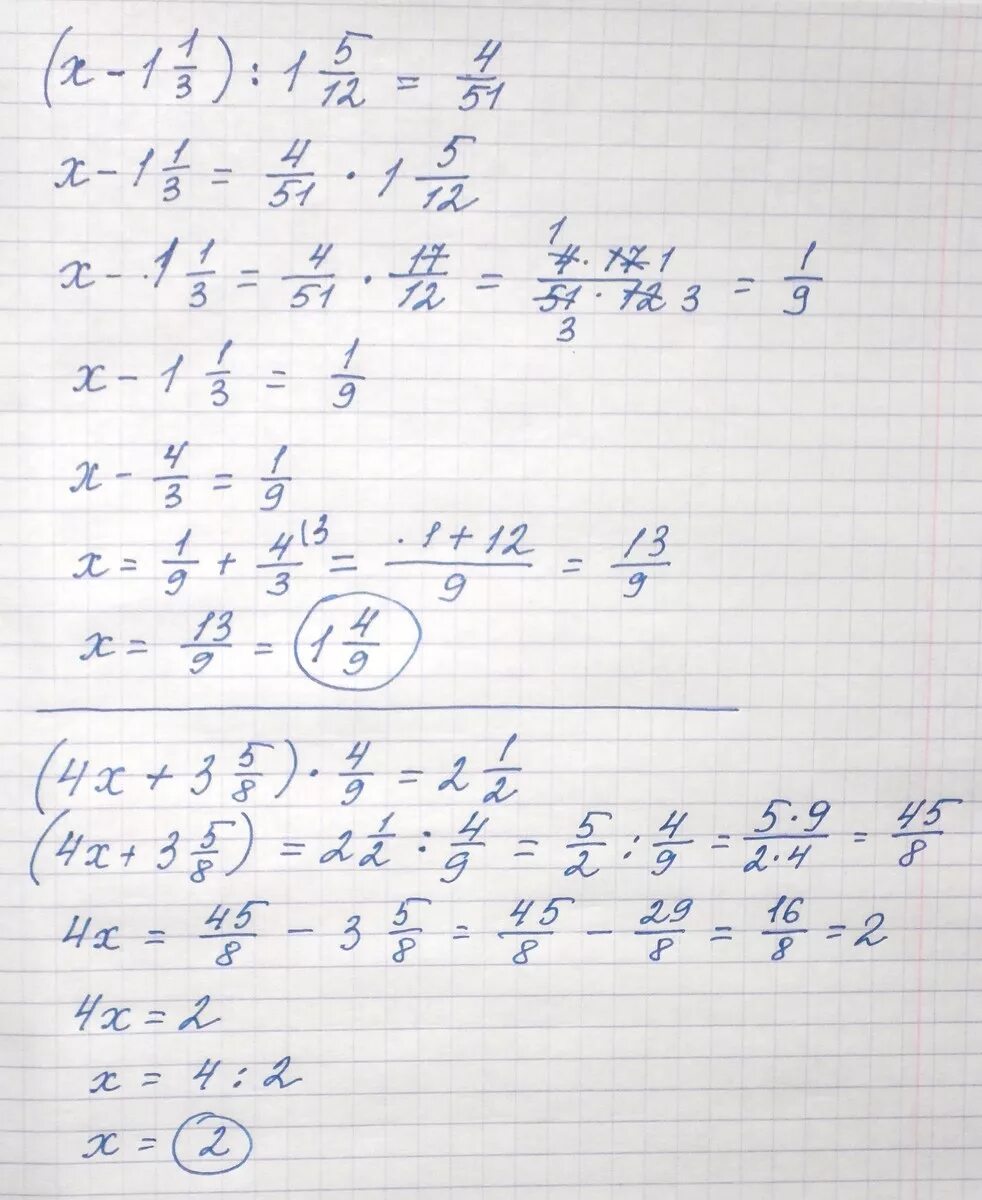 (x - 1 1/3) : 1 5/12 = 4/51
x - 1 1/3 = 4/51 · 1 5/12
x - 1 1/3 = 4/51 · 17/12 = 1 4 · 17 1 / 51 · 12 3 3 = 1/9
x - 1 1/3 = 1/9
x - 4/3 = 1/9
x = 1/9 + 4/3 (3 = 1+12/9 = 13/9
x = 13/9 = 1 4/9
(4x + 3 5/8) · 4/9 = 2 1/2
(4x + 3 5/8) = 2 1/2 : 4/9 = 5/2 : 4/9 = 5·9/2·4 = 45/8
4x = 45/8 - 3 5/8 = 45/8 - 29/8 = 16/8 = 2
4x = 2
x = 4 : 2
x = 2